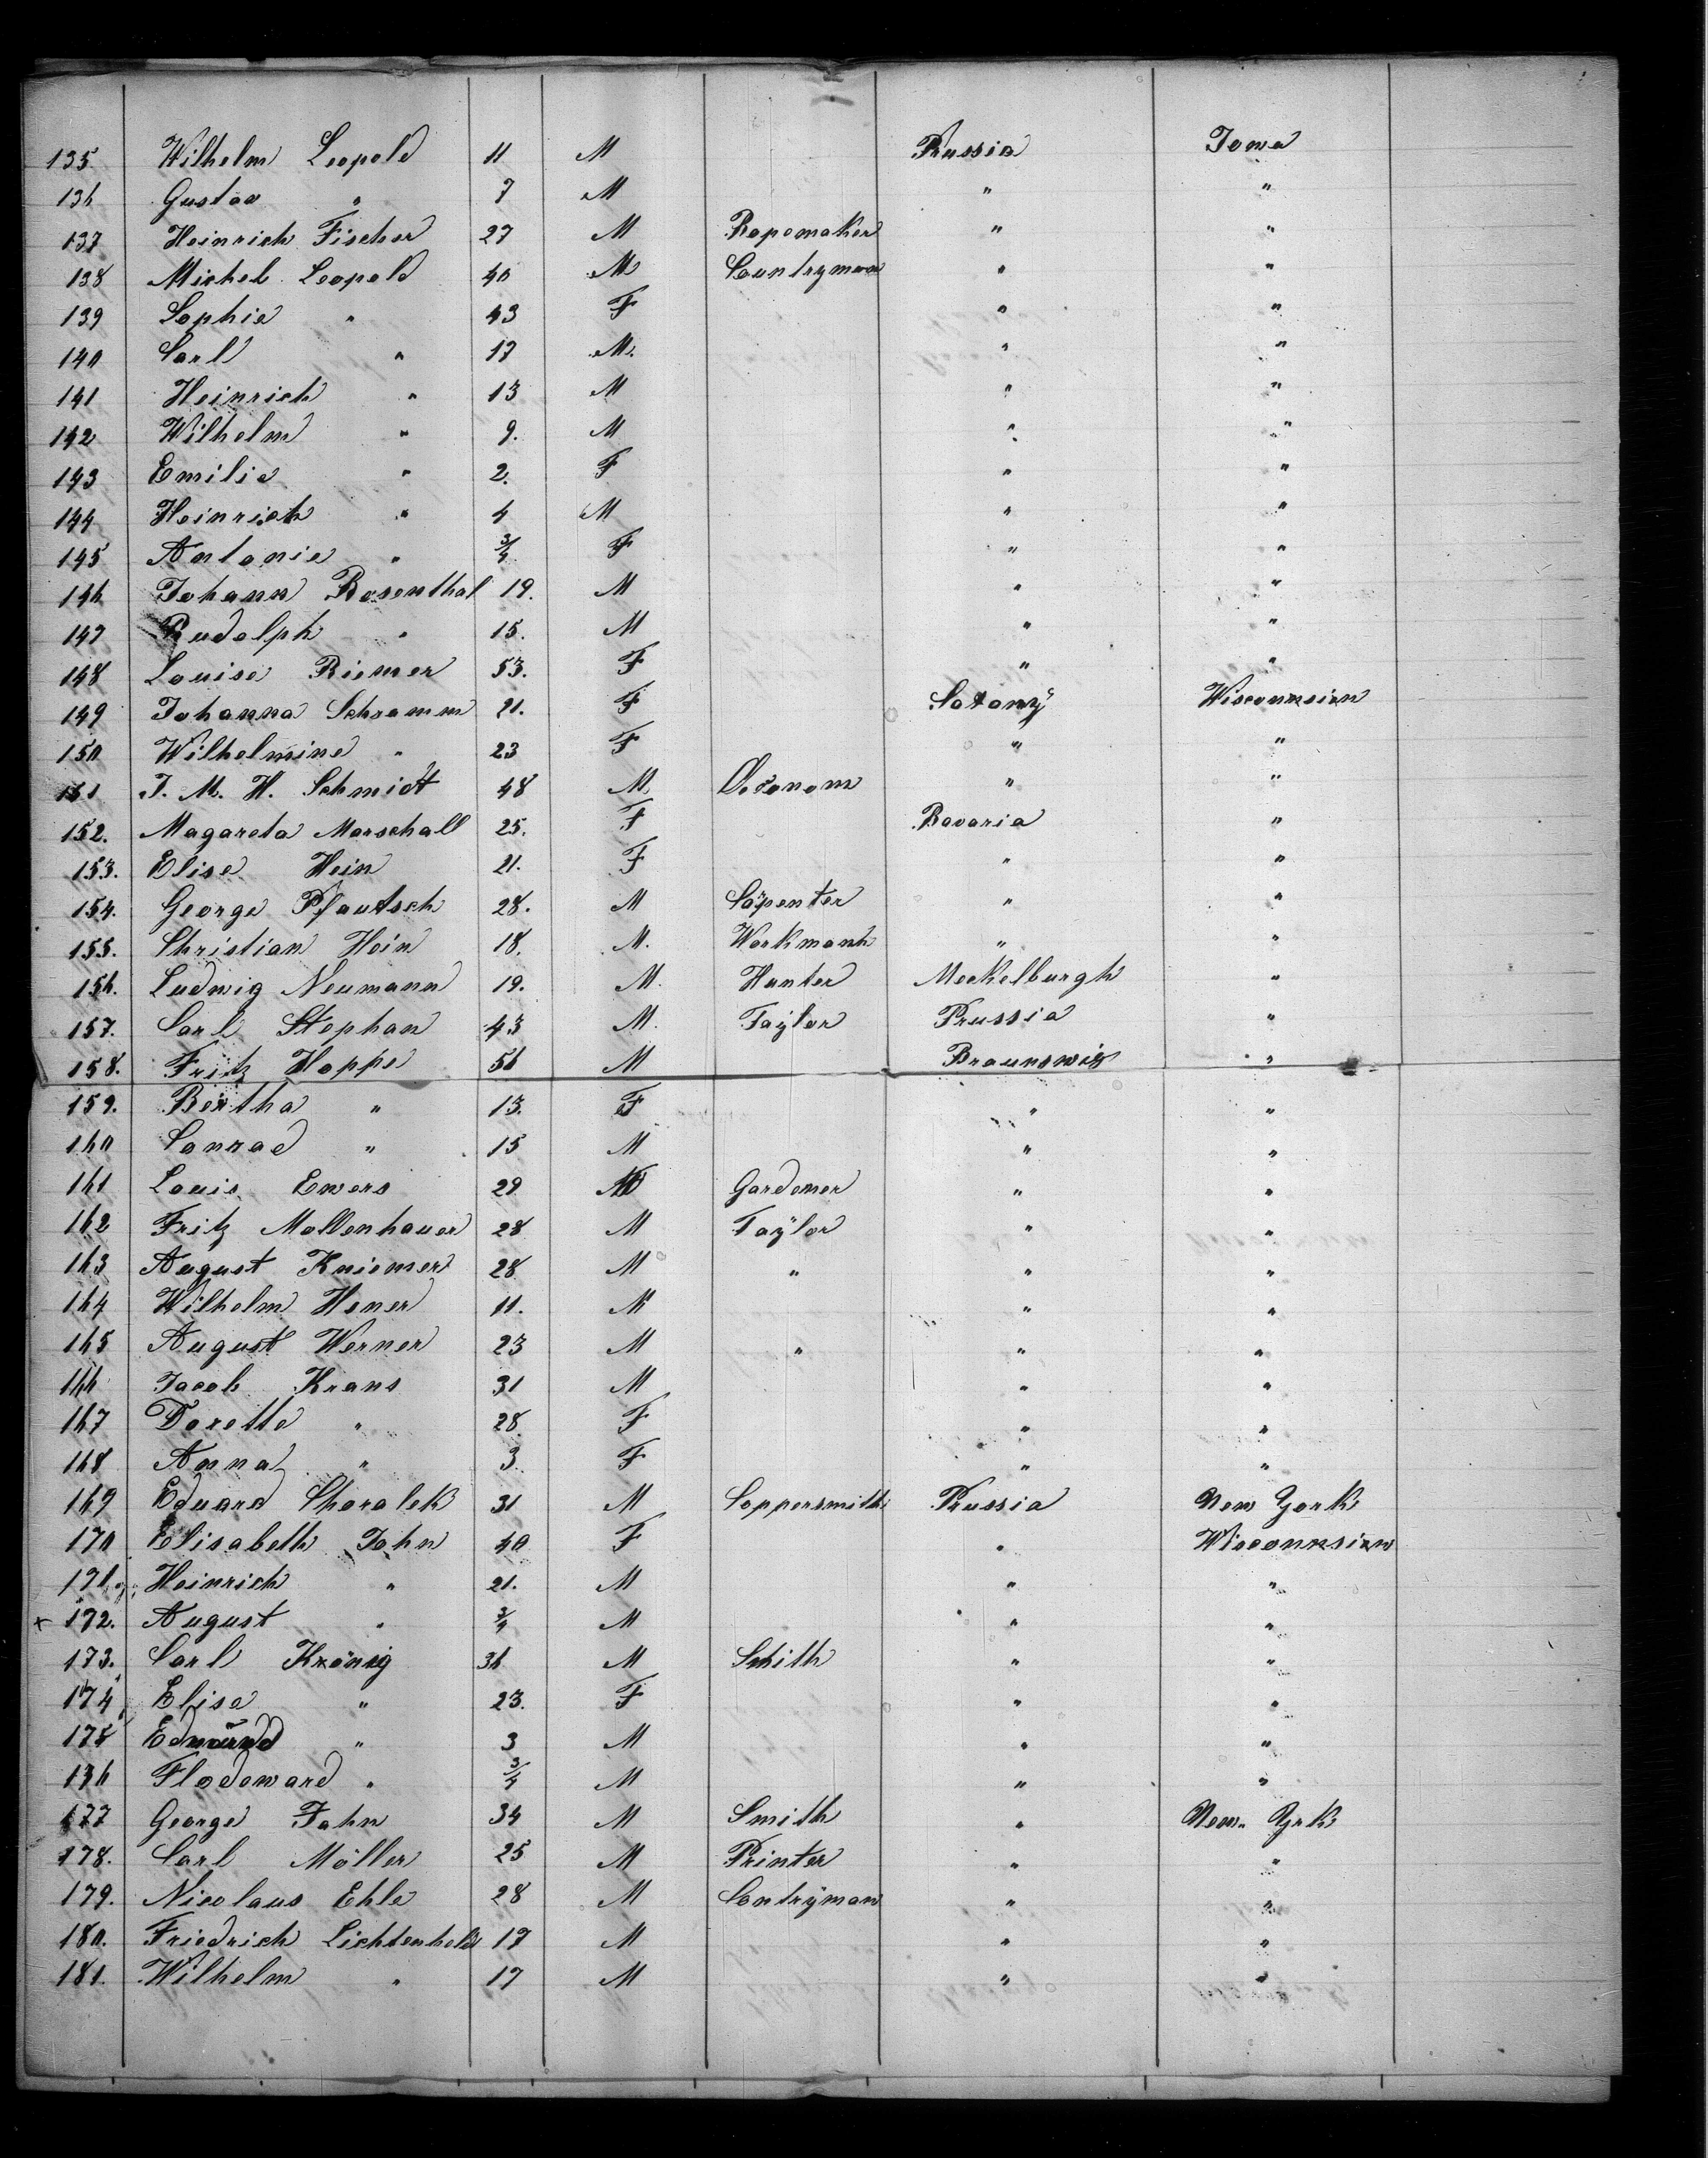 135 Wilhelm Leopold 11 M Prussia Iowa
136 Gustav " 7 M " "
137 Heinrich Fischer 27 M Ropemaker " "
138 Michel Leopold 40 M Countryman " "
139 Sophie " 43 F " "
140 Carl " 17 M. " "
141 Heinrich " 13 M " "
142 Wilhelm " 9. M " "
143 Emilie " 2. F " "
144 Heinrich " 4 M " "
145 Antonie " 3/4 F " "
146 Johann Rosenthal 19. M " "
147 Rudolph " 15. M " "
148 Louise Riemer 53. F " "
149 Johanna Schramm 21. F Saxony Wisconnsien
150 Wilhelmine " 23 F " "
151 J. M. H. Schmidt 48 M Oeconom " "
152. Magareta Marschall 25. F Bavaria "
153. Elise Hein 21. F " "
154. George Pfautsch 28. M Carpenter " "
155. Christian Hein 18. M. Workmann " "
156. Ludwig Neumann 19. M. Hunter Meckelburgh "
157. Carl Stephan 43 M. Taylor Prussia "
158. Fritz Hoppe 56 M Braunswig "
159. Bertha " 13. F " "
160 Conrad " 15 M " "
161 Louis Ewers 29 M Gardener " "
162 Fritz Mollenhauer 28 M Taylor " "
163 August Kniemer 28 M " " "
164 Wilhelm Hener 11. M " "
165 August Werner 23 M " " "
166 Jacob Krans 31 M " "
167 Dorette " 28. F " "
168 Anna " 3 F " "
169 Eduard Choralek 31 M Coppersmith Prussia New York
170 Elisabeth John 40 F " Wisconnsien
171. Heinrich " 21. M " "
x 172. August " 3/4 M " "
173. Carl Krönig 36 M Smith " "
174 Elise " 23. F " "
175 Edmund " 3 M " "
176 Flodoward " 3/4 M " "
177 George Jahn 34 M Smith " New York
178. Carl Möller 25 M Printer " "
179. Nicolaus Ehle 28 M Contryman " "
180. Friedrich Lichtenheld 17 M " "
181. Wilhelm " 17 M " "